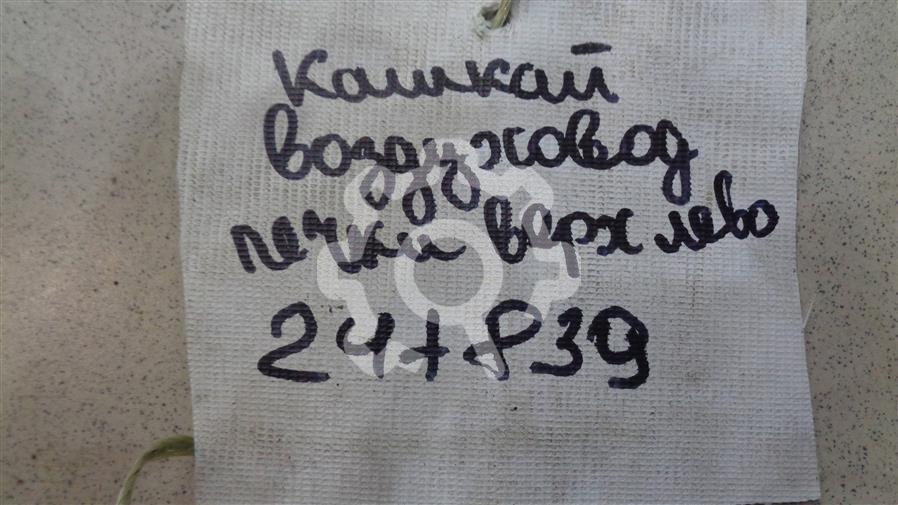 Кашкай
воздуховод
печки верх лево
24+839